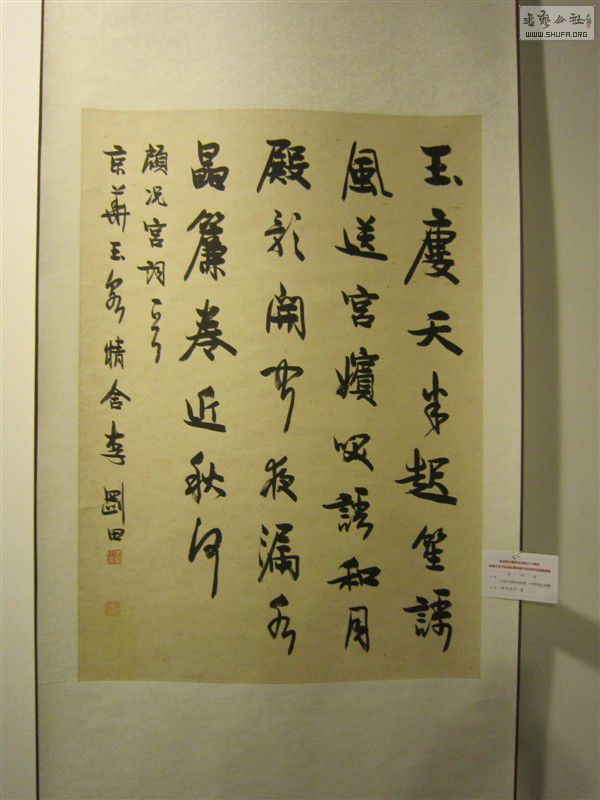 書藝公社
WWW.SHUFA.ORG
玉廔天半起笙謌
風送宮嬪咲語和月
殿影開聞夜漏水
晶簾卷近秋河
顧況宮詞一首
京華玉泉精舍李剛田